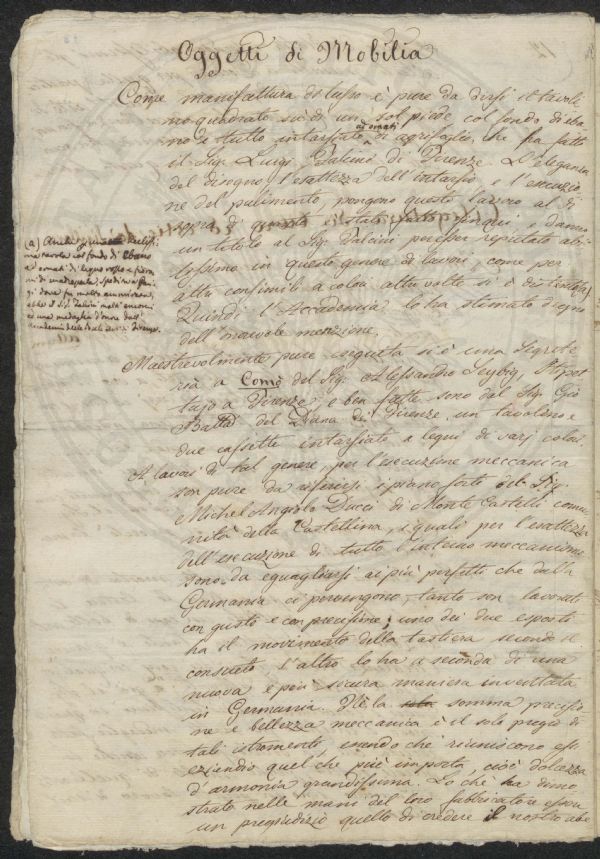 Oggetti di Mobilia
Come manifattura di lusso è pure da dirsi il tavoli
no quadrato su di un sol piede col fondo di eba
no e tutto intarsiato ed ornati di agrifoglio, che ha fatto
il Sig. Luigi Falcini di Firenze. L'eleganza
del disegno, l'esattezza dell'intarsio e l'esecuzio
ne del pulimento, pongono questo lavoro al di
sopra di quanto è stato fatto finqui, e danno
un titolo al Sig. Falcini per esser reputato abi
lissimo in questo genere di lavori, come per
altri consimili a colai altre volte si è distinto (a)
Quindi l'Accademia lo ha stimato degno
dell'onorevole menzione.
(a) Anche
ma tavola col fondo di Ebano
ed ornati di legno rosso e fiora
mi di madreperla, spedì va Pari
gi dove fu molto ammirata,
e che il Sig. Falcini meritò ancora
una medaglia d'onore dall'
Accademia delle Belle Arti di Firenze.
Maestrevolmente pure eseguita si è una Segrete
ria a Comò del Sig. Alessandro
a Firenze, e ben fatte sono dal Sig. Gio
Batta del Diana di Firenze un tavolino e
due cassette intarsiate a legni di varj colori.
A lavori di tal genere, per l'esecuzione meccanica
son pure da riferirsi i piano forti del Sig.
Michel Angiolo Ducci di Monte Castelli comu
nità della Castellina, i quali per l'esattezza
dell'esecuzione di tutto l'interno meccanismo
sono da eguagliarsi ai più perfetti che dalla
Germania ci pervengono, tanto son lavorati
con gusto e con precisione; uno dei due esposti
ha il movimento della tastiera secondo il
consueto, l'altro lo ha a seconda di una
nuova e più sicura maniera inventata
in Germania. Nè la sola somma precisio
ne e bellezza meccanica è il solo pregio di
tali istromenti, essendo che riuniscono essi
eziandio quel che più importa cioè dolcezza
d'armonia grandissima. Lo chè ha dimo
strato nelle mani del loro fabbricatore essere
un pregiudizio quello di credere il nostro abe